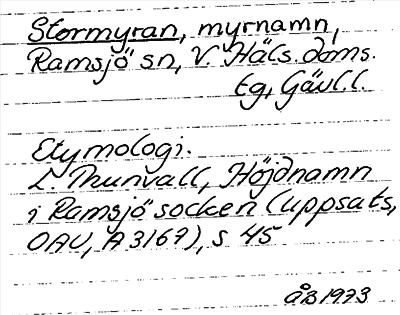 Stormyran, myrnamn,
Ramsjö sn, V. Häls. doms.
tg, Gävl.l.
Etymologi.
L. Thunvall, Höjdnamn
i Ramsjö socken (uppsats,
OAU, A 3167), s 45
ÅB 1973